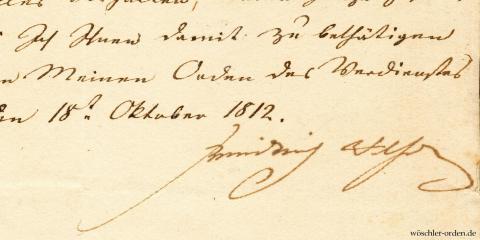 Ich Ihnen damit zu bethätigen
Meinen Orden des Verdienstes
den 18t. Oktober 1812.
Friedrich
wöschler-orden.de